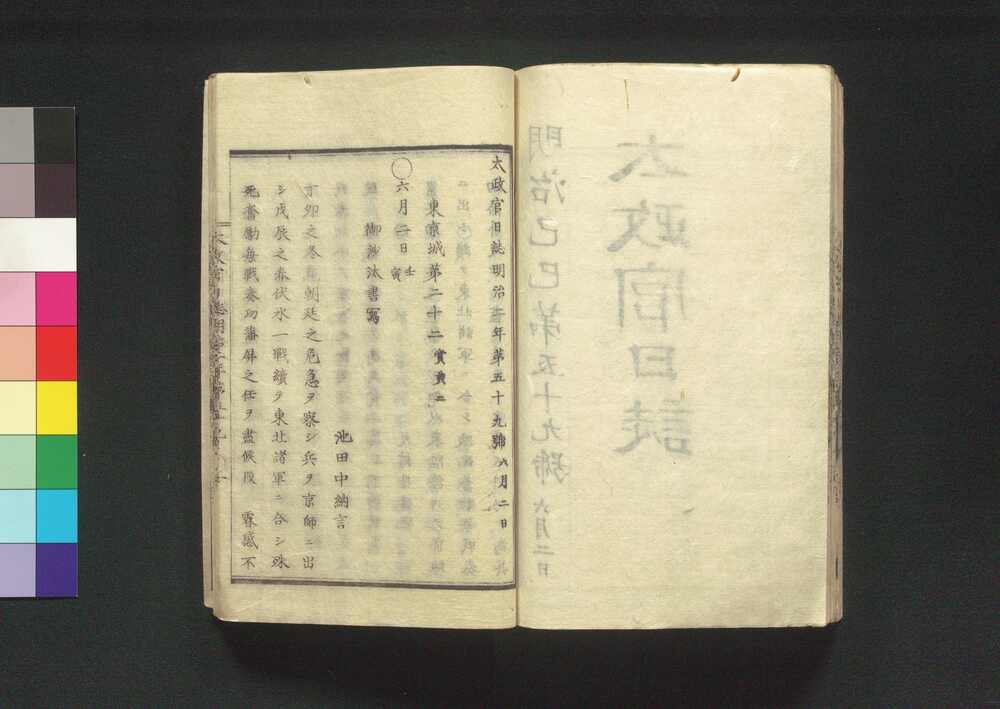 太政官日誌
明治己巳第五十九號 六月二日
太政官日誌明治二年第五十九號 六月二日
東京城第二十二 賞典二
○六月二日 壬寅
御沙汰書寫
池田中納言
丁卯之冬 朝廷之危急ヲ察シ兵ヲ京師ニ出
シ戊辰之春伏水一戰續ヲ東北諸軍ニ合シ殊
死奮勵每戰奏功藩屏之任ヲ盡候段 霖感不